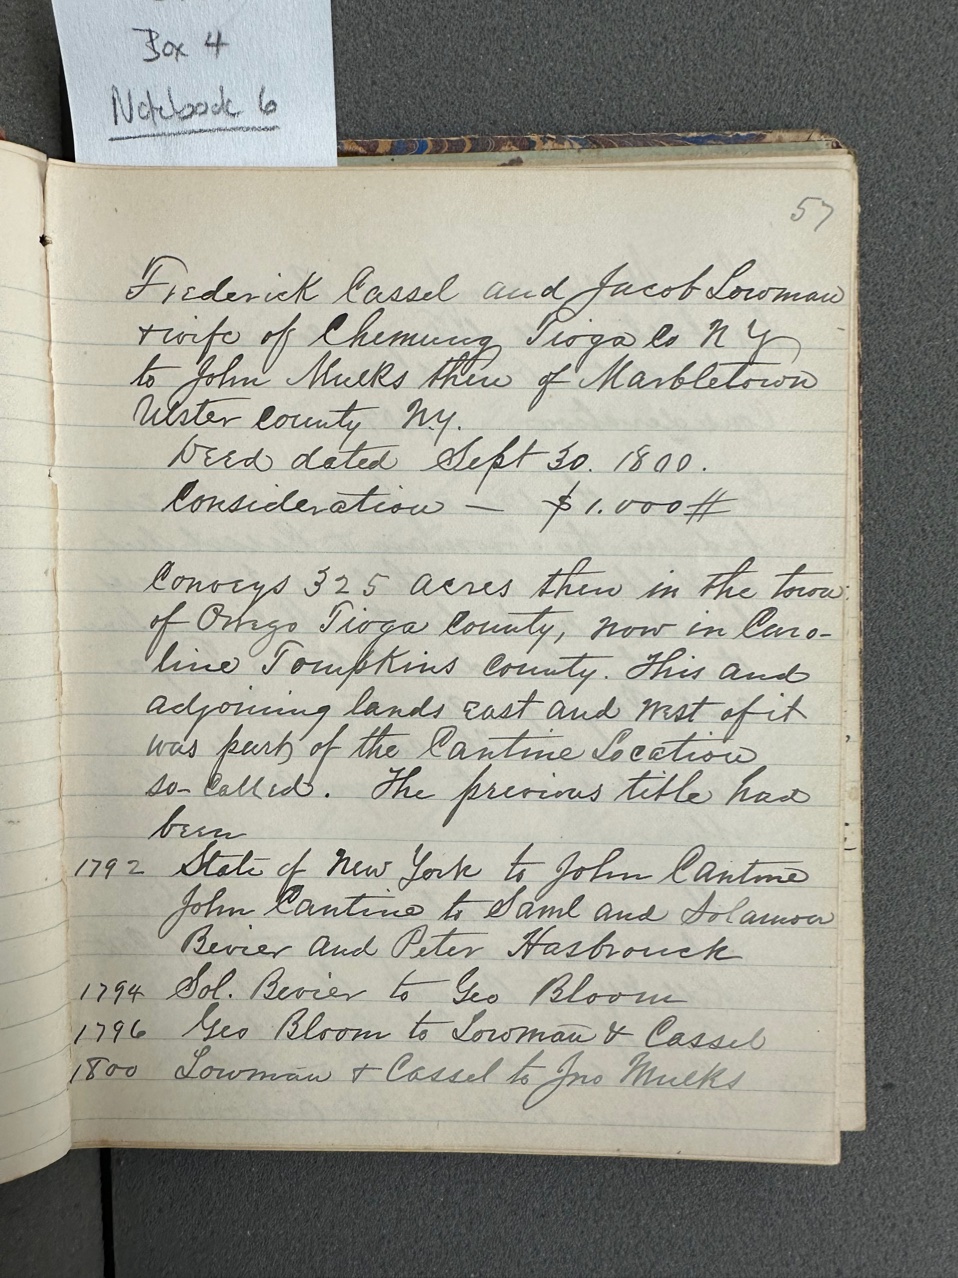 Box 4
Notebook 6
57
Frederick Cassel and Jacob Lowman
& wife of Chemung Tioga Co N Y
to John Mulks then of Marbletown
Ulster County N.Y.
Deed dated Sept 30. 1800.
Consideration — $1.000#
Conveys 325 acres then in the town
of Owego Tioga County, now in Caro-
line Tompkins County. This and
adjoining lands east and west of it
was part of the Cantine Location
so-called. The previous title had
been
1792 State of New York to John Cantine
John Cantine to Saml and Solamon
Bevier and Peter Hasbrouck
1794 Sol. Bevier to Geo Bloom
1796 Geo Bloom to Lowman & Cassel
1800 Lowman & Cassel to Jno Mulks